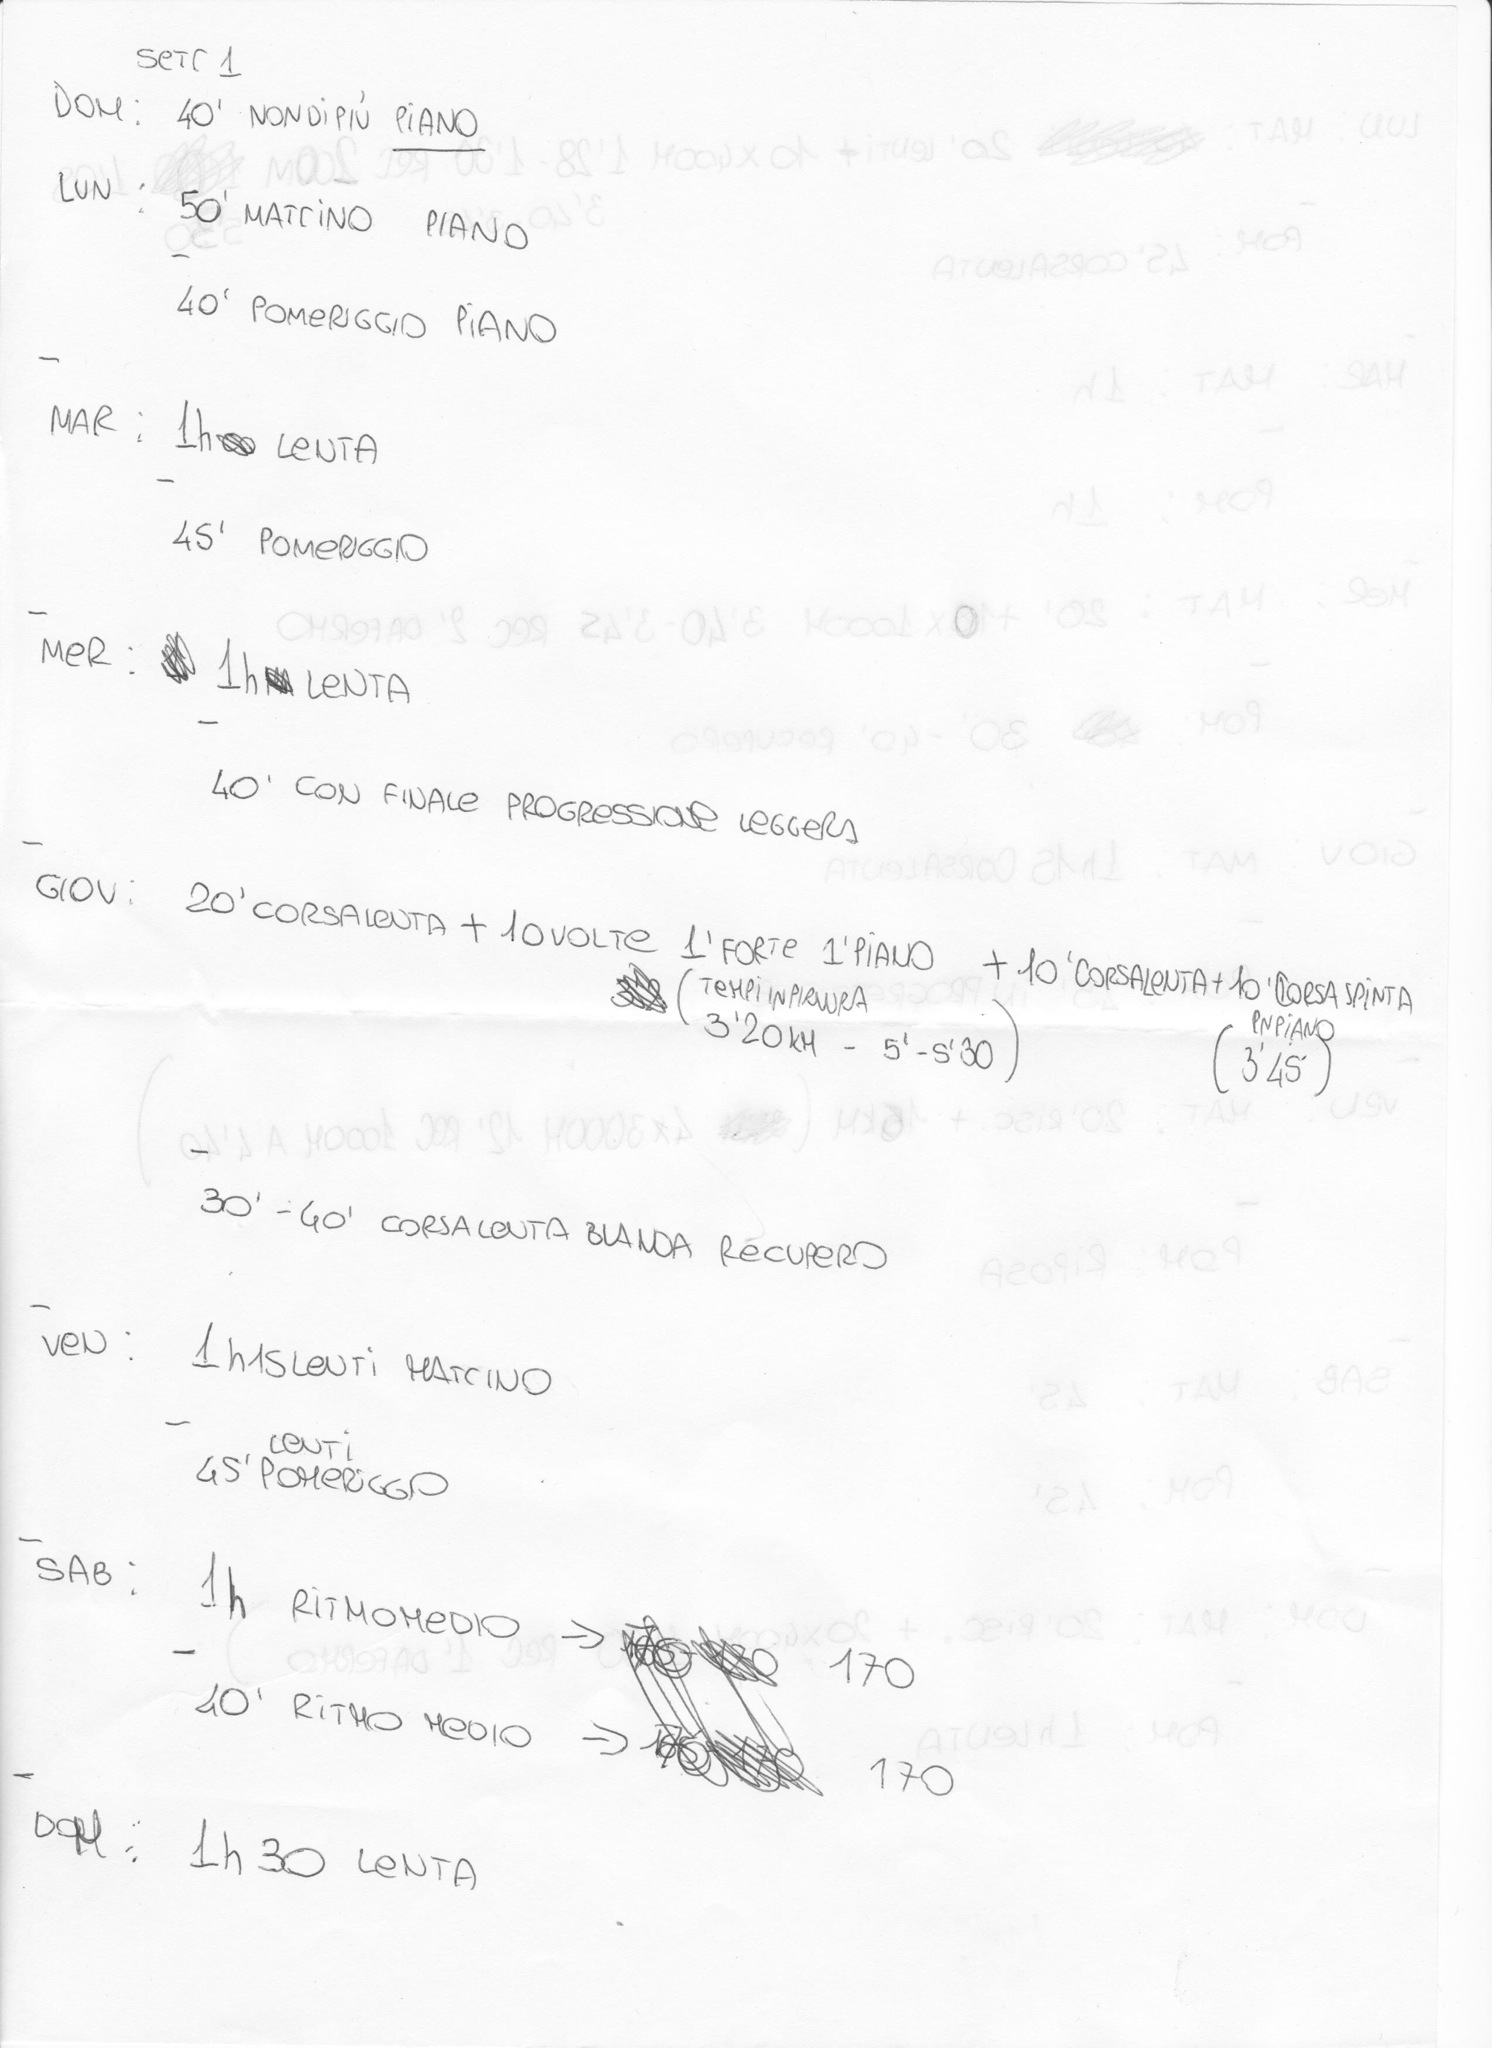 SETT 1
DOM: 40' NON DI PIÙ PIANO
LUN: 50' MATTINO PIANO
-
40' POMERIGGIO PIANO
-
MAR: 1h LENTA
-
45' POMERIGGIO
-
MER: 1h LENTA
-
40' CON FINALE PROGRESSIONE LEGGERA
-
GIOV: 20' CORSA LENTA + 10 VOLTE 1' FORTE 1' PIANO + 10' CORSA LENTA + 10' CORSA SPINTA
(TEMPI IN PIANURA IN PIANO
3'20 KM - 5'-5'30) (3'45)
-
30' - 40' CORSA LENTA BLANDA RECUPERO
-
VEN: 1h15 LENTI MATTINO
-
LENTI
45' POMERIGGIO
-
SAB: 1h RITMO MEDIO → 170
-
40' RITMO MEDIO → 170
-
DOM: 1h 30 LENTA